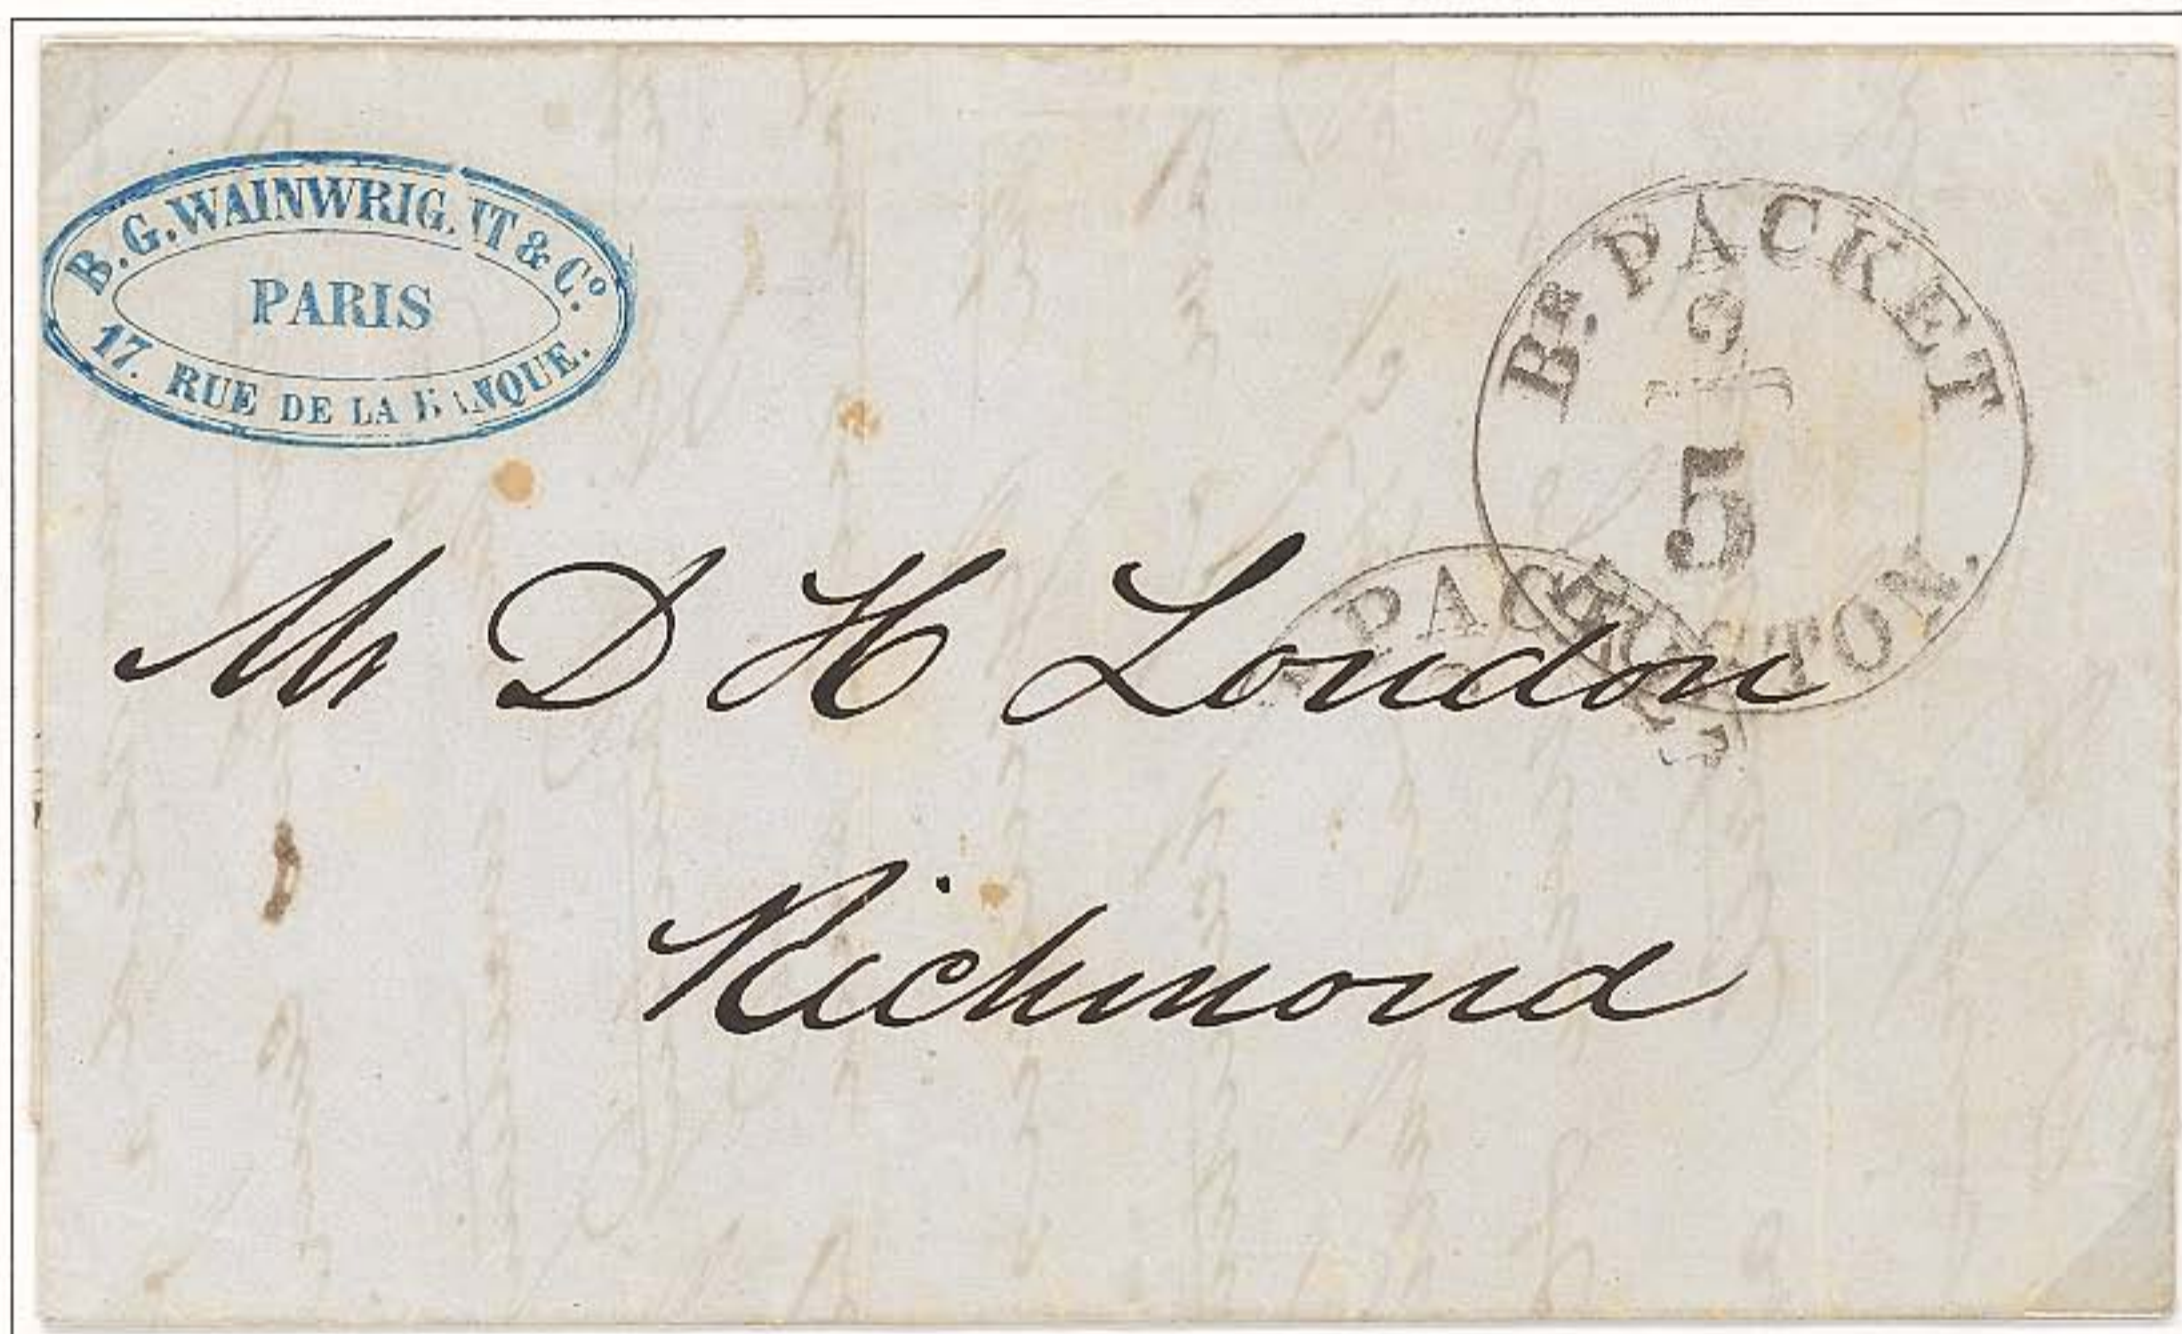 B. G. WAINWRIGHT & Cº.
PARIS
17. RUE DE LA BANQUE.
Bᴿ. PACKET
5
BOSTON.
PACKET
Mr D H London
Richmond